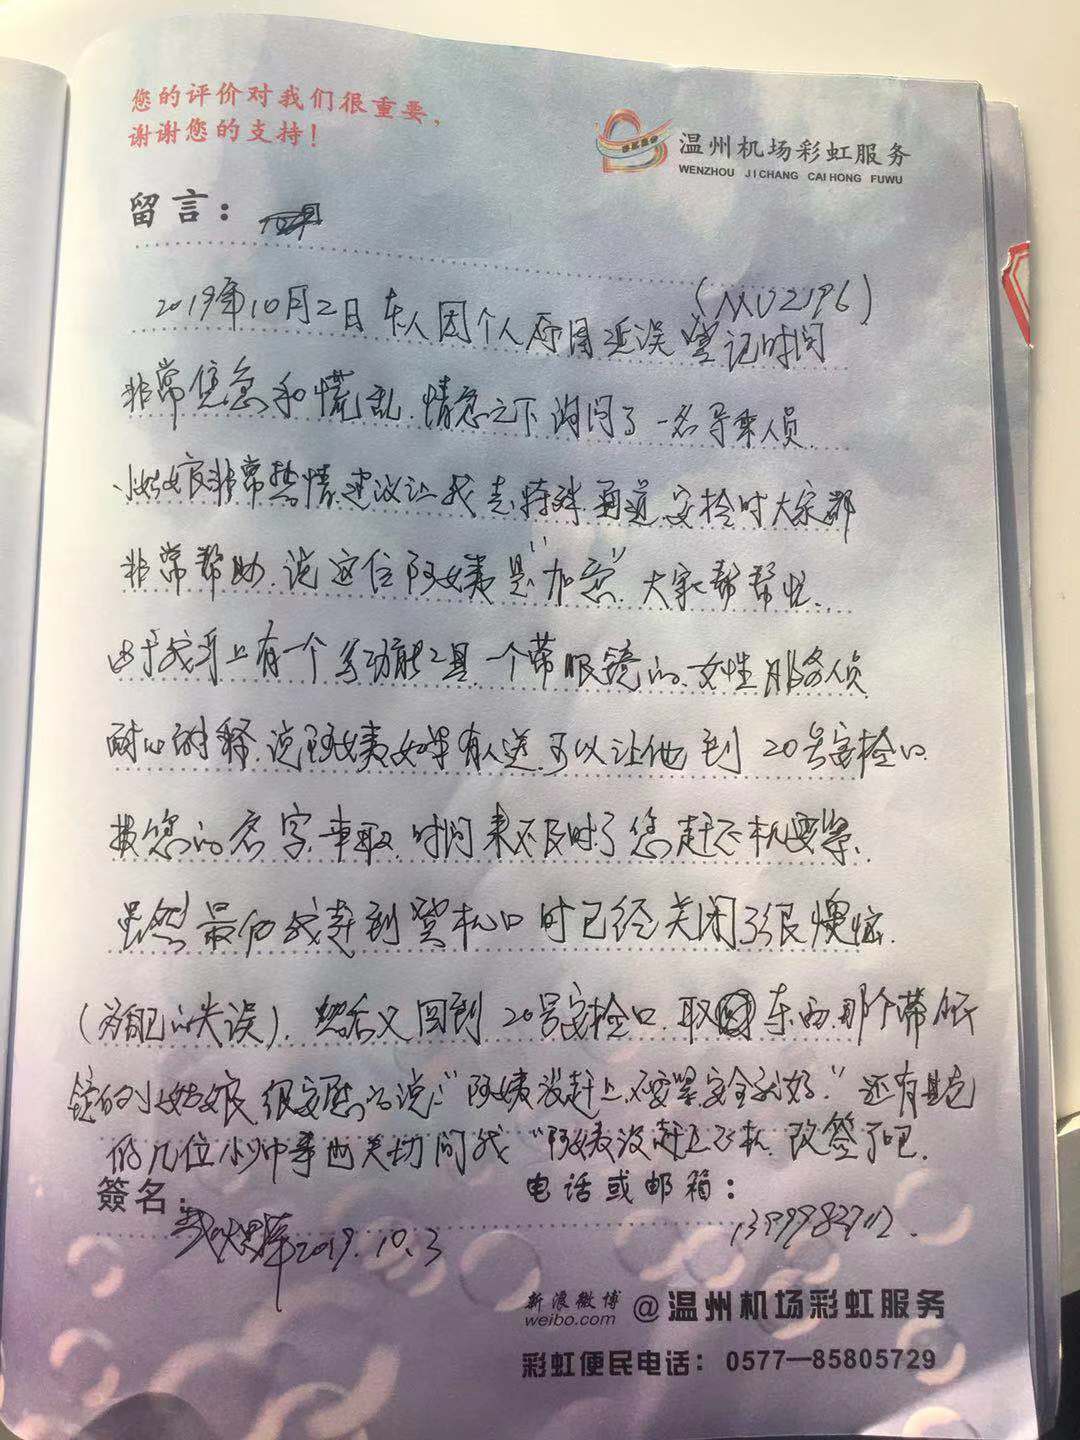 您的评价对我们很重要，
谢谢您的支持！
温州机场彩虹服务
WENZHOU JICHANG CAIHONG FUWU
留言：
(MU2196)
2019年10月2日 本人因个人原因延误登记时间
非常焦急和慌乱.情急之下询问了一名导乘人员.
小姑娘非常热情建议让我走特殊通道.安检时大家都
非常帮助.说这位阿姨是"加急".大家帮帮忙.
由于我手上有一个多功能工具.一个带眼镜的女性服务人员
耐心的解释.说阿姨如果有人送.可以让他到20号安检口.
报您的名字 来取.时间来不及时了您赶飞机要紧.
虽然最后我赶到登机口时已经关闭了很懊恼.
(为自己的失误).然后又回到20号安检口.取 东西.那个带眼
镜的小姑娘.很安慰的说:"阿姨没赶上.不要紧安全就好."还有其它
的几位小同事也关切问我"阿姨没赶上飞机.改签了吧.
簽名：
2019.10.3
电话或邮箱：
新浪微博
weibo.com
@温州机场彩虹服务
彩虹便民电话：0577—85805729